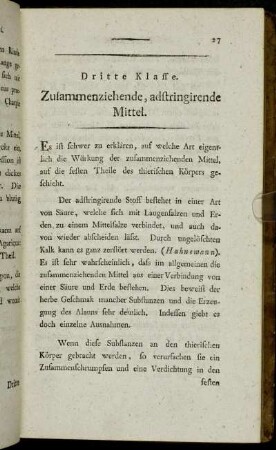 27
Dritte Klasse.
Zusammenziehende, adstringirende
Mittel.
Es ist schwer zu erklären, auf welche Art eigent-
lich die Würkung der zusammenziehenden Mittel,
auf die festen Theile des thierischen Körpers ge-
schieht.
Der adstringirende Stoff bestehet in einer Art
von Säure, welche sich mit Laugensalzen und Er-
den, zu einem Mittelsalze verbindet, und auch da-
von wieder abscheiden lässt. Durch ungelöschten
Kalk kann es ganz zerstört werden. (Hahnemann).
Es ist sehr wahrscheinlich, dass im allgemeinen die
zusammenziehenden Mittel aus einer Verbindung von
einer Säure und Erde bestehen. Dies beweist der
herbe Geschmak mancher Substanzen und die Erzeu-
gung des Alauns sehr deutlich. Indessen giebt es
doch einzelne Ausnahmen.
Wenn diese Substanzen an den thierischen
Körper gebracht werden, so verursachen sie ein
Zusammenschrumpfen und eine Verdichtung in den
festen
Dritte